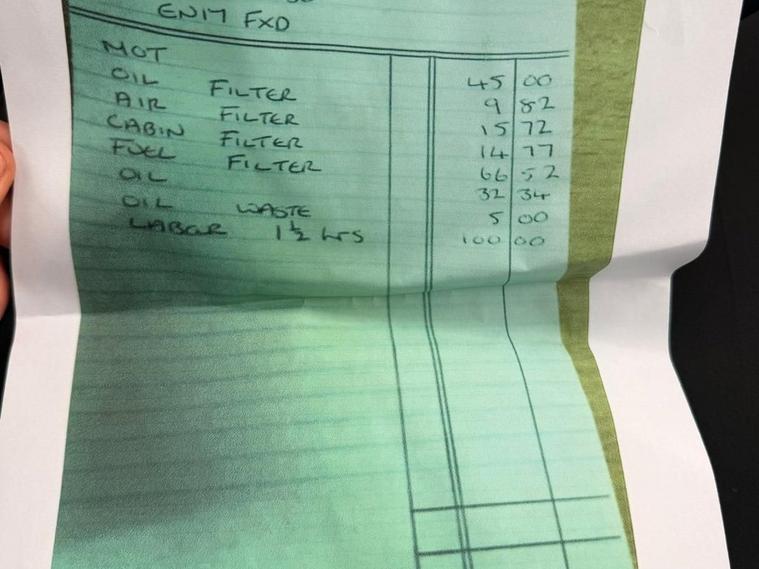 EN17 FXD
MOT 45 00
OIL FILTER 9 82
AIR FILTER 15 72
CABIN FILTER 14 77
FUEL FILTER 66 52
OIL 32 34
OIL WASTE 5 00
LABOUR 1½ hrs 100 00